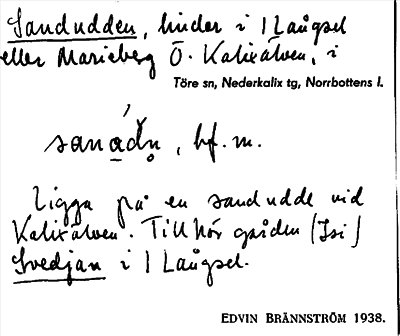 Sandudden, linder i 1 Långsel
eller Marieberg Ö. Kalixälven, i
Töre sn, Nederkalix tg, Norrbottens l.
sanádn̥, bf. m.
Ligga på en sandudde vid
Kalixälven. Tillhör gården (Isi)
Svedjan i 1 Långsel.
EDVIN BRÄNNSTRÖM 1938.